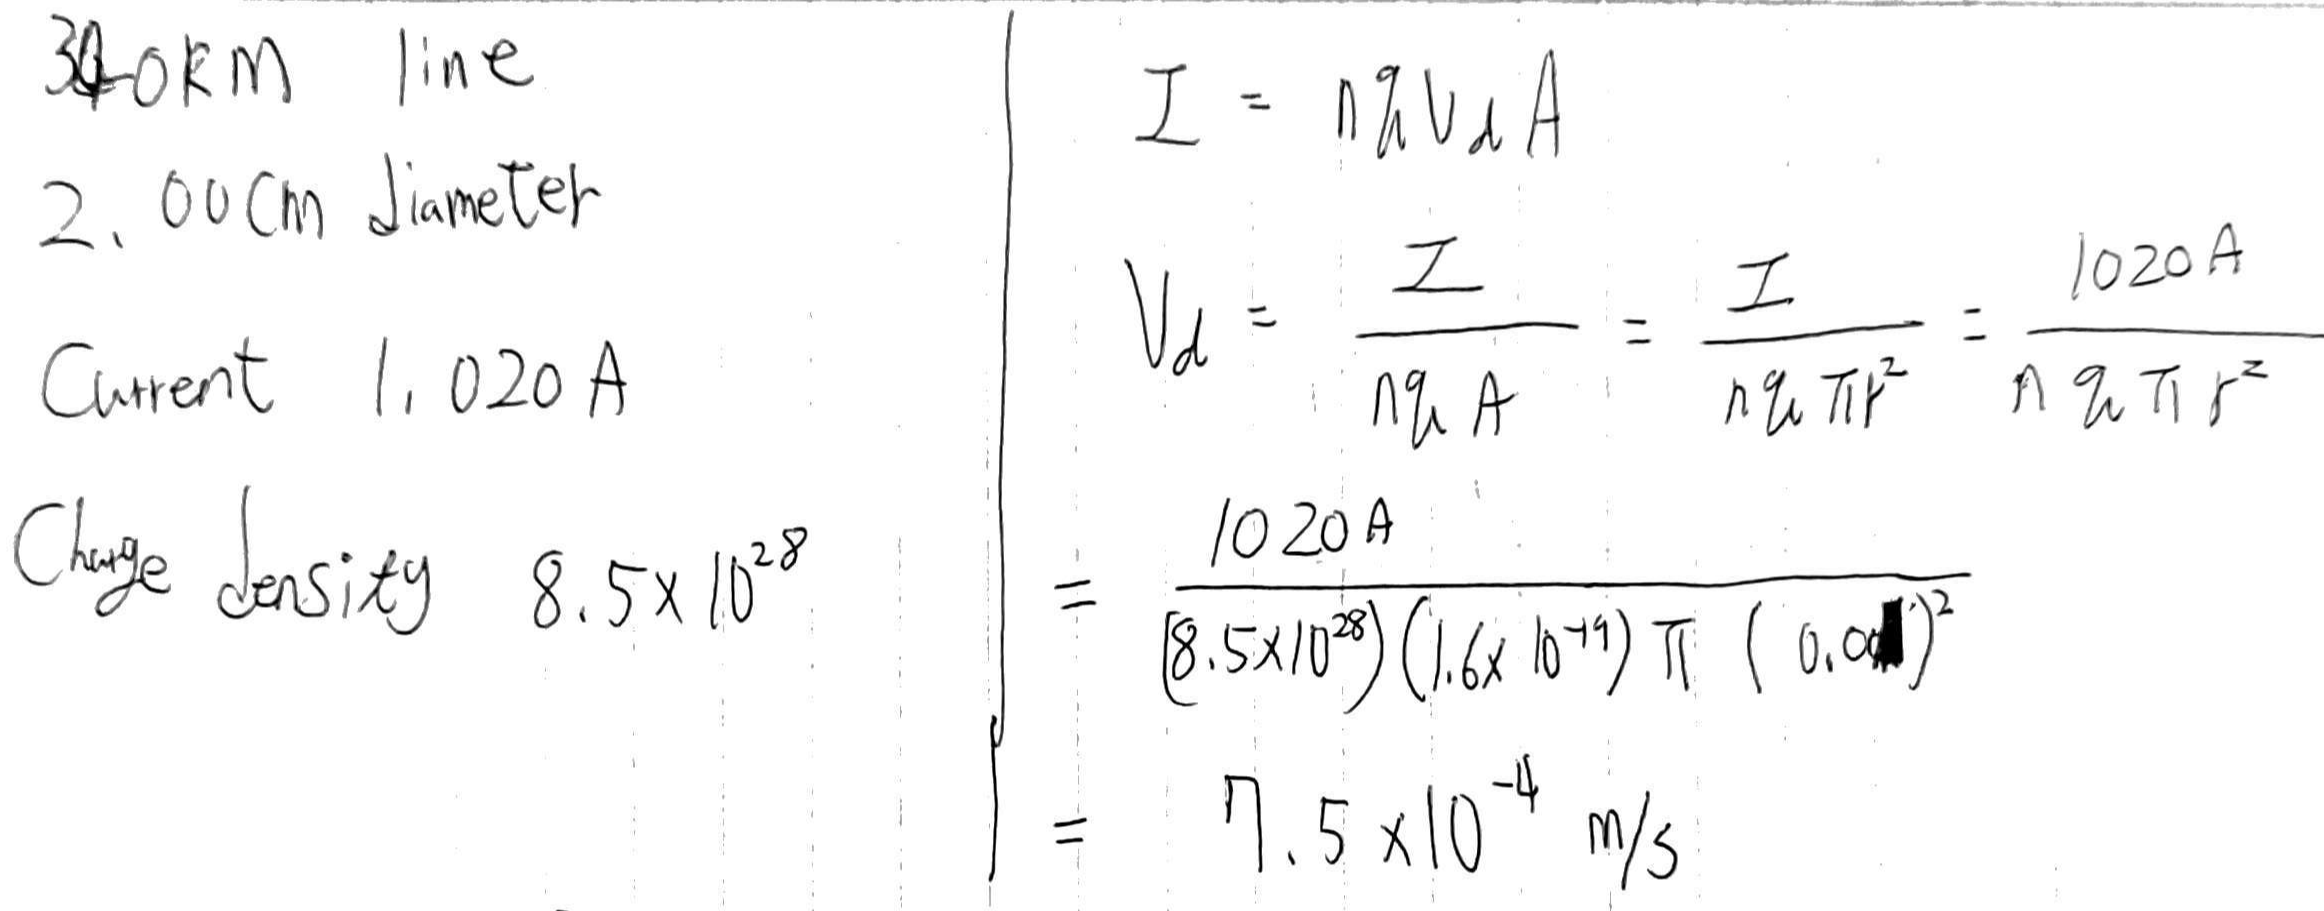 340km line
2.00cm diameter
Current 1,020A
Charge density 8.5×10²⁸
I = nqV_dA
V_d = I / nqA = I / nqπr² = 1020A / nqπr²
= 1020A / (8.5×10²⁸)(1.6×10⁻¹⁹)π(0.01)²
= 7.5×10⁻⁴ m/s